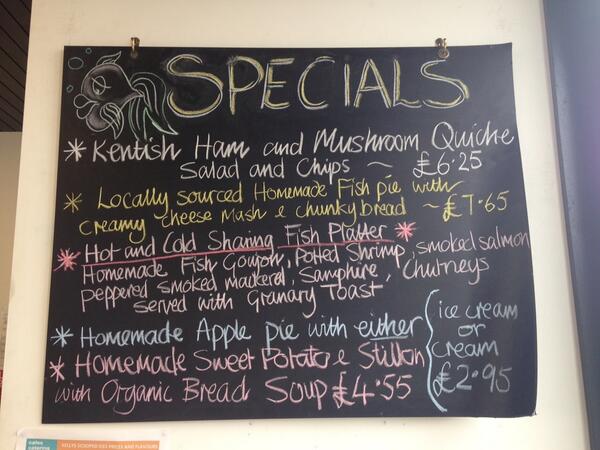 SPECIALS
* Kentish Ham and Mushroom Quiche
Salad and Chips ~ £6.25
* Locally sourced Homemade Fish pie with
creamy cheese mash & chunky bread ~ £7.65
* Hot and Cold Sharing Fish Platter *
Homemade Fish Goujon, Potted Shrimp, smoked salmon
peppered smoked mackerel, Samphire, Chutneys
served with Granary Toast
* Homemade Apple pie with either
ice cream
or
cream
£2.95
* Homemade Sweet Potato & Stilton
with Organic Bread Soup £4.55
KELLYS SCOOPED ICES PRICES AND FLAVOURS